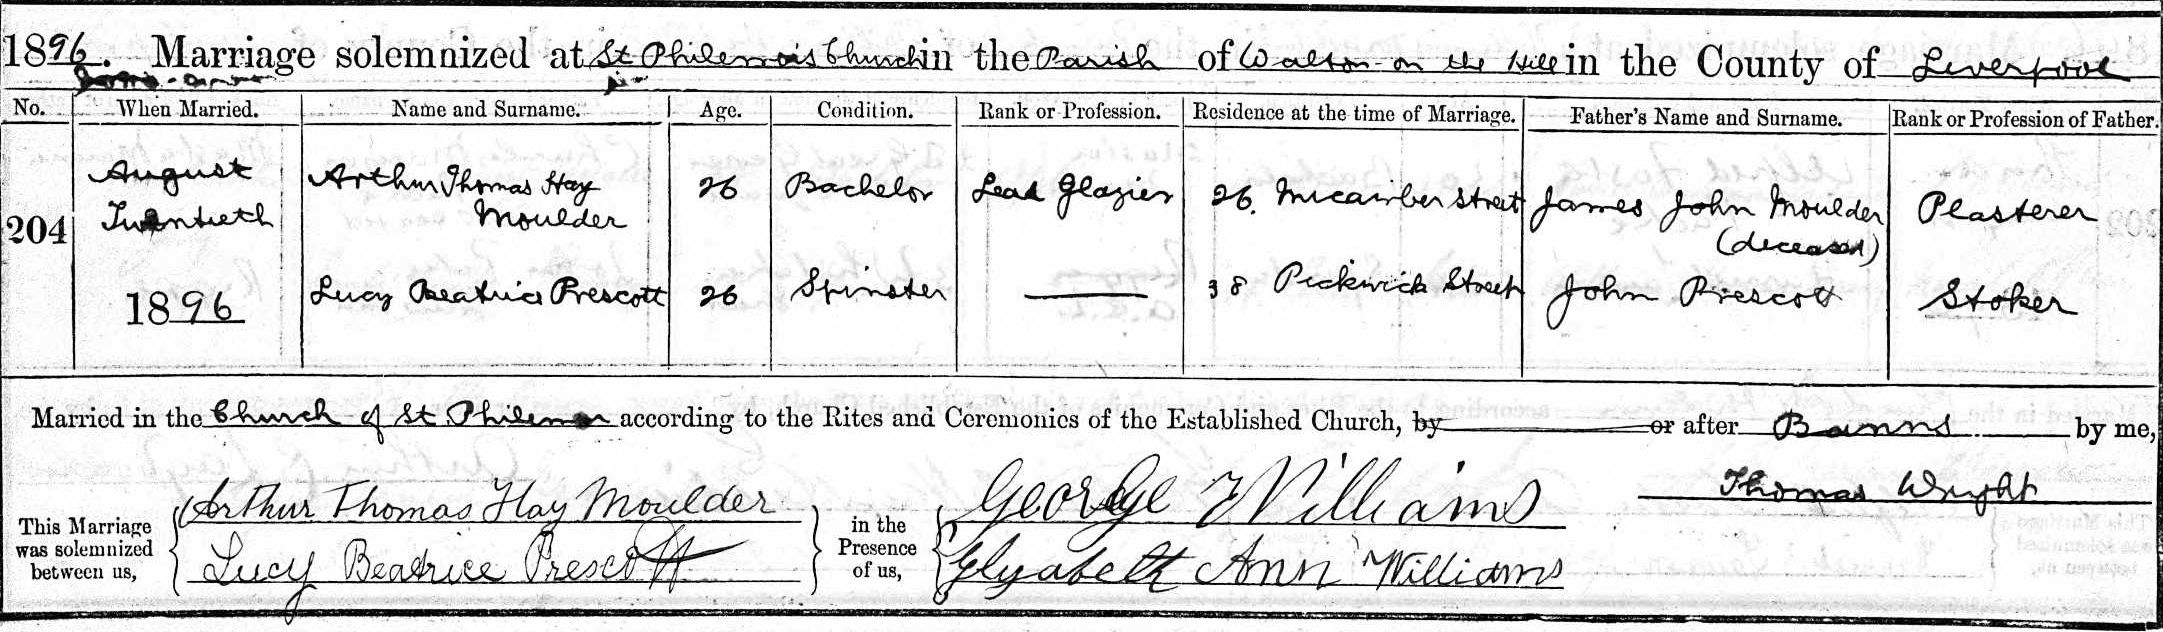 1896. Marriage solemnized at St Philemon's Church in the Parish of Walton on the Hill in the County of Liverpool
No. When Married. Name and Surname. Age. Condition. Rank or Profession. Residence at the time of Marriage. Father's Name and Surname. Rank or Profession of Father.
204 August Twentieth 1896
Arthur Thomas Hay Moulder 26 Bachelor Lead Glazier 26. Micawber Street James John Moulder (deceased) Plasterer
Lucy Beatrice Prescott 26 Spinster —— 38 Pickwick Street John Prescott Stoker
Married in the Church of St Philemon according to the Rites and Ceremonies of the Established Church, by or after Banns by me,
Thomas Wright
This Marriage was solemnized between us,
Arthur Thomas Hay Moulder
Lucy Beatrice Prescott
in the Presence of us,
George Williams
Elyzabeth Ann Williams